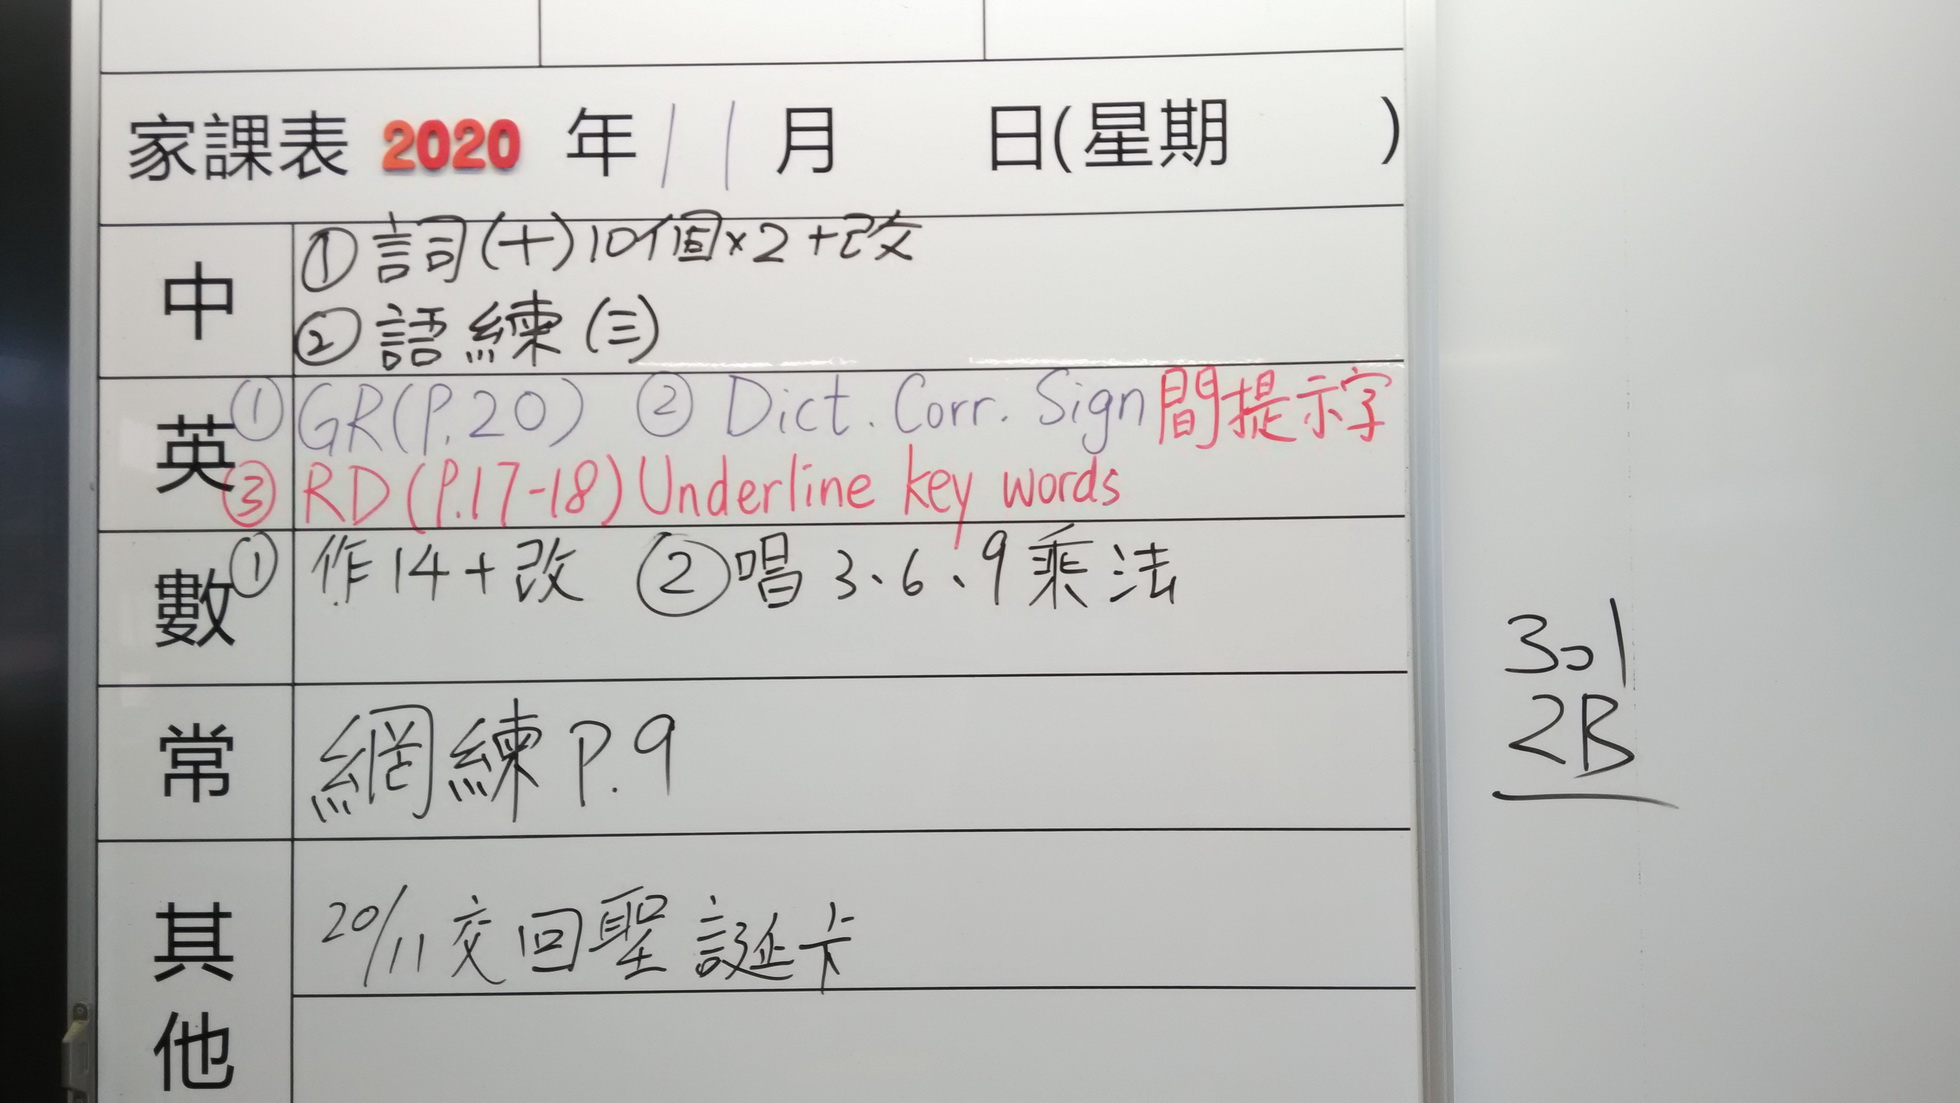 家課表 2020 年 11 月 日(星期 )
中
① 詞(十)10個×2+改
② 語練(三)
英
① GR(P.20) ② Dict. Corr. Sign 間提示字
③ RD(P.17-18) Underline key words
數
① 作14+改 ② 唱3、6、9乘法
常
網練 P.9
其他
20/11 交回聖誕卡
301
2B